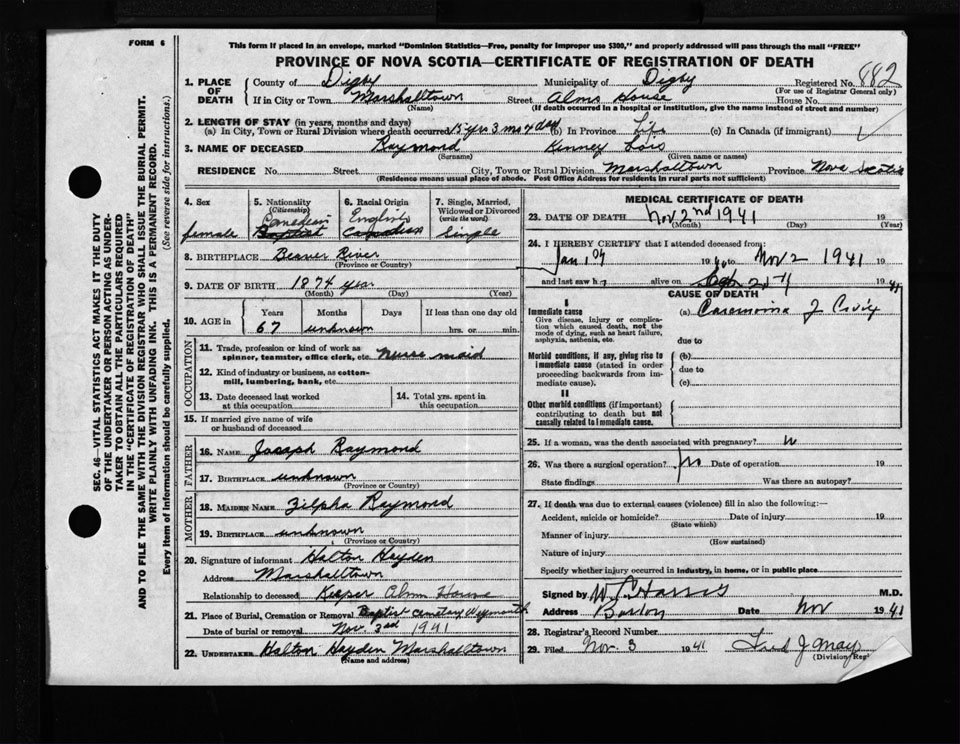 FORM 6
This form if placed in an envelope, marked "Dominion Statistics—Free, penalty for improper use $300," and properly addressed will pass through the mail "FREE"
PROVINCE OF NOVA SCOTIA—CERTIFICATE OF REGISTRATION OF DEATH
1. PLACE OF DEATH
County of Digby Municipality of Digby Registered No. 882
(For use of Registrar General only)
If in City or Town Marshalltown Street Alms House House No.
(Name) (If death occurred in a hospital or institution, give the name instead of street and number)
2. LENGTH OF STAY (in years, months and days)
(a) In City, Town or Rural Division where death occurred 15 yrs 3 mos 4 days (b) In Province Life (c) In Canada (if immigrant)
3. NAME OF DECEASED Raymond Kenney Lois
(Surname) (Given name or names)
RESIDENCE No. Street City, Town or Rural Division Marshalltown Province Nova Scotia
(Residence means usual place of abode. Post Office Address for residents in rural parts not sufficient)
4. Sex
female
5. Nationality
(Citizenship)
Canadian
Baptist
6. Racial Origin
English
Canadian
7. Single, Married, Widowed or Divorced
(write the word)
Single
8. BIRTHPLACE Beaver River
(Province or Country)
9. DATE OF BIRTH 1874 year
(Month) (Day) (Year)
10. AGE in Years Months Days If less than one day old
67 unknown hrs. or min.
OCCUPATION
11. Trade, profession or kind of work as spinner, teamster, office clerk, etc. Nurse maid
12. Kind of industry or business, as cotton-mill, lumbering, bank, etc.
13. Date deceased last worked at this occupation
14. Total yrs. spent in this occupation
15. If married give name of wife or husband of deceased
FATHER
16. NAME Joseph Raymond
17. BIRTHPLACE unknown
(Province or Country)
MOTHER
18. MAIDEN NAME Zilpha Raymond
19. BIRTHPLACE unknown
(Province or Country)
20. Signature of informant Halton Hayden
Address Marshalltown
Relationship to deceased Keeper Alms House
21. Place of Burial, Cremation or Removal Baptist cemetary Weymouth
Date of burial or removal Nov. 3rd 1941
22. UNDERTAKER Halton Hayden Marshalltown
(Name and address)
MEDICAL CERTIFICATE OF DEATH
23. DATE OF DEATH Nov 2nd 1941 19
(Month) (Day) (Year)
24. I HEREBY CERTIFY that I attended deceased from:
Jan 1st 19 to Nov 2 1941 19
and last saw h alive on 19 41
CAUSE OF DEATH
I
Immediate cause
Give disease, injury or complication which caused death, not the mode of dying, such as heart failure, asphyxia, asthenia, etc.
(a)
due to
Morbid conditions, if any, giving rise to immediate cause (stated in order proceeding backwards from immediate cause).
(b)
due to
(c)
II
Other morbid conditions (if important) contributing to death but not causally related to immediate cause.
25. If a woman, was the death associated with pregnancy?
26. Was there a surgical operation? No Date of operation 19
State findings Was there an autopsy?
27. If death was due to external causes (violence) fill in also the following:—
Accident, suicide or homicide? Date of injury 19
(State which)
Manner of injury
(How sustained)
Nature of injury
Specify whether injury occurred in industry, in home, or in public place
Signed by Harris M.D.
Address Date Nov 1941
28. Registrar's Record Number
29. Filed Nov. 3 1941 Fred J May
(Division Reg
SEC. 46—VITAL STATISTICS ACT MAKES IT THE DUTY
OF THE UNDERTAKER OR PERSON ACTING AS UNDER-
TAKER TO OBTAIN ALL THE PARTICULARS REQUIRED
IN THE "CERTIFICATE OF REGISTRATION OF DEATH"
AND TO FILE THE SAME WITH THE DIVISION REGISTRAR WHO SHALL ISSUE THE BURIAL PERMIT.
WRITE PLAINLY WITH UNFADING INK. THIS IS A PERMANENT RECORD.
Every item of information should be carefully supplied. (See reverse side for instructions.)